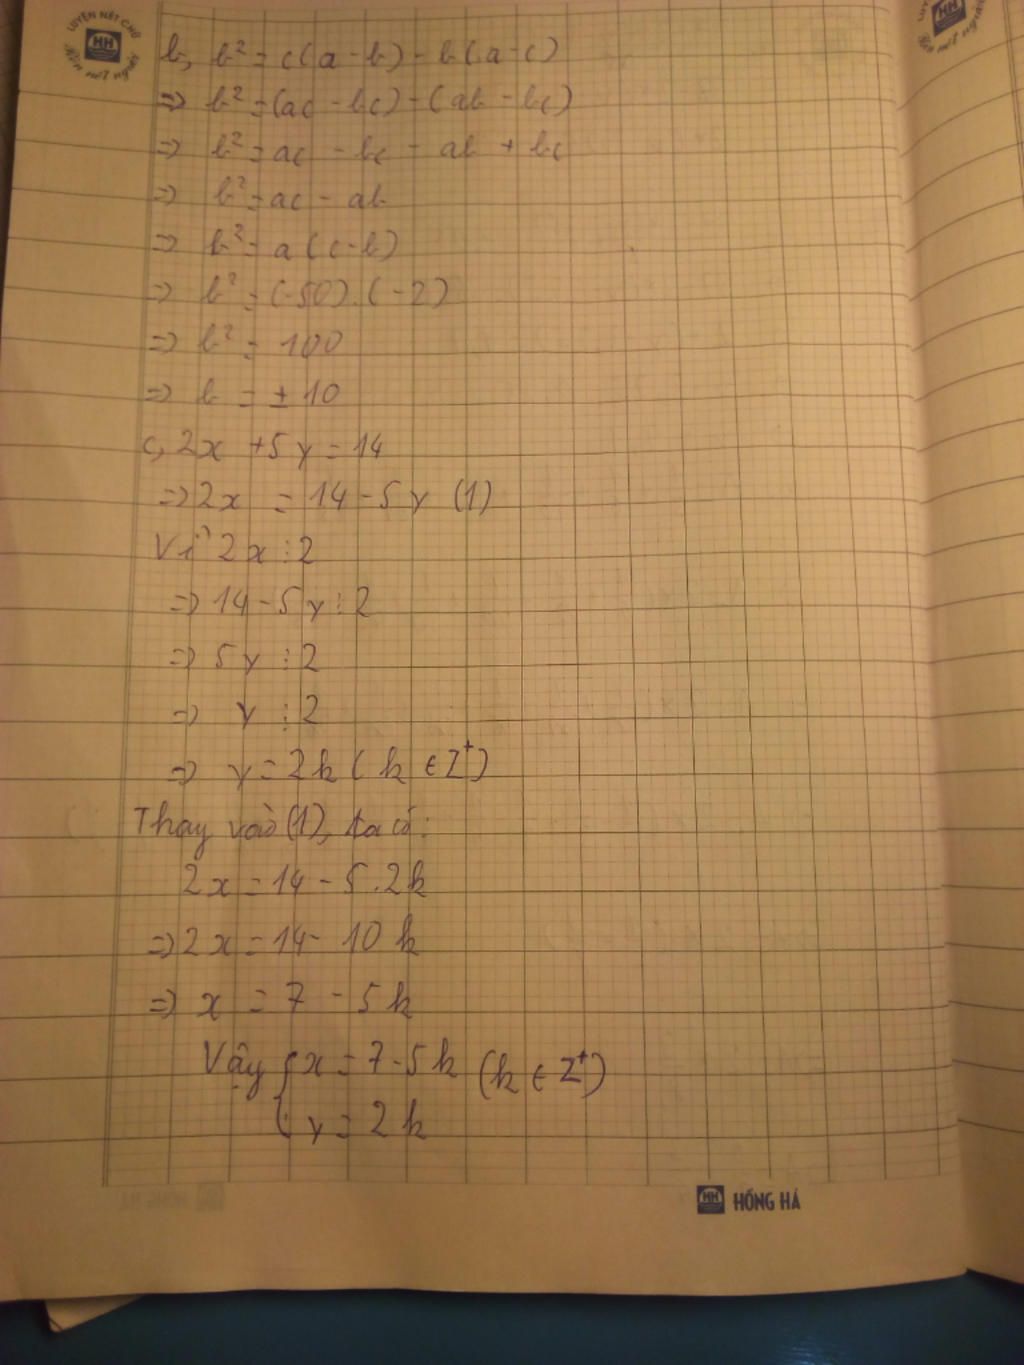 LUYỆN NÉT CHỮ
HH
Rèn nết người
b, b² = c(a - b) - b(a - c)
=> b² = (ac - bc) - (ab - bc)
=> b² = ac - bc - ab + bc
=> b² = ac - ab
=> b² = a(c - b)
=> b² = (-50).(-2)
=> b² = 100
=> b = ± 10
c, 2x + 5y = 14
=> 2x = 14 - 5y (1)
Vì 2x ⋮ 2
=> 14 - 5y ⋮ 2
=> 5y ⋮ 2
=> y ⋮ 2
=> y = 2k (k ∈ Z⁺)
Thay vào (1), ta có:
2x = 14 - 5.2k
=> 2x = 14 - 10k
=> x = 7 - 5k
Vậy { x = 7 - 5k (k ∈ Z⁺)
y = 2k
HH HỒNG HÀ